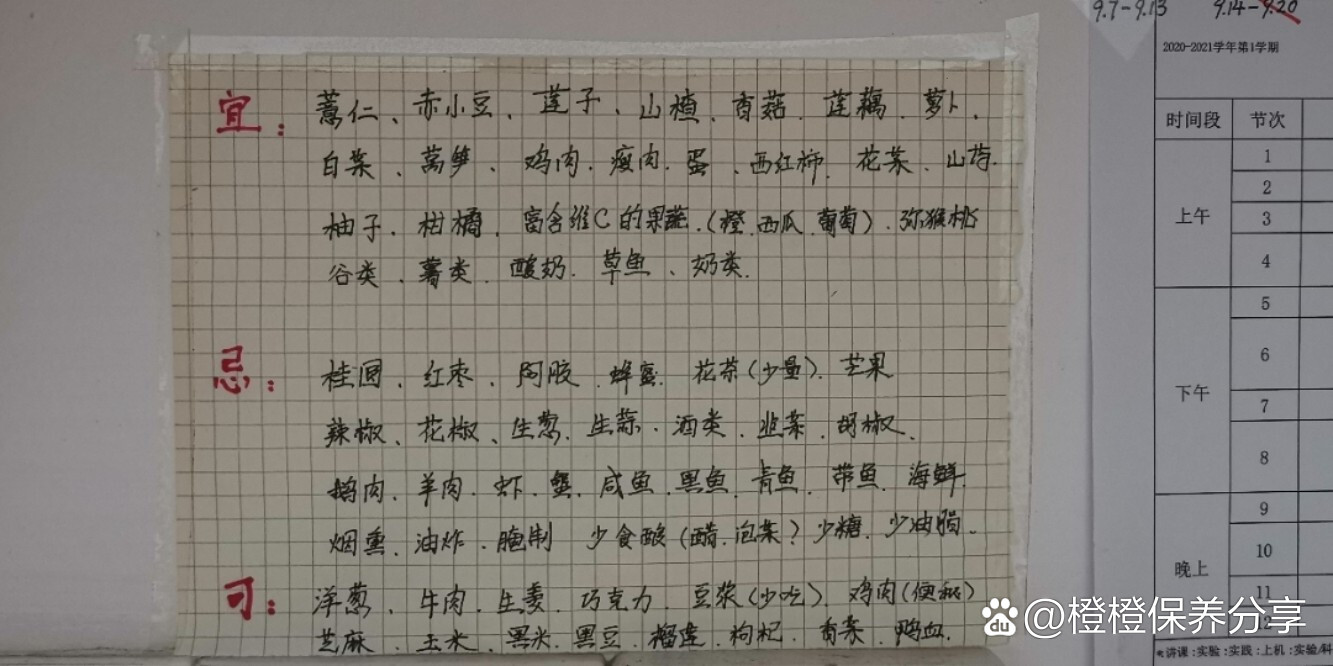 宜：薏仁、赤小豆、莲子、山楂、香菇、莲藕、萝卜、
白菜、莴笋、鸡肉、瘦肉、蛋、西红柿、花菜、山药、
柚子、柑橘、富含维C的果蔬、(橙、西瓜、葡萄)、弥猴桃
谷类、薯类、酸奶、草鱼、奶类、
忌：桂圆、红枣、阿胶、蜂蜜、花茶(少量)、芒果
辣椒、花椒、生葱、生蒜、酒类、韭菜、胡椒、
鹅肉、羊肉、虾、蟹、咸鱼、黑鱼、青鱼、带鱼、海鲜、
烟熏、油炸、腌制 少食酸(醋、泡菜?少糖、少油脂、
洋葱、牛肉、生姜、巧克力、豆浆(少吃)、鸡肉(便秘)
芝麻、玉米、黑米、黑豆、榴莲、枸杞、香菜、鸭血、
9.7-9.13 9.14-9.20
2020-2021学年第1学期
时间段 节次
上午
1
2
3
4
下午
5
6
7
8
晚上
9
10
11
12
讲课:实验:实践:上机:实验/科
Bai du @橙橙保养分享